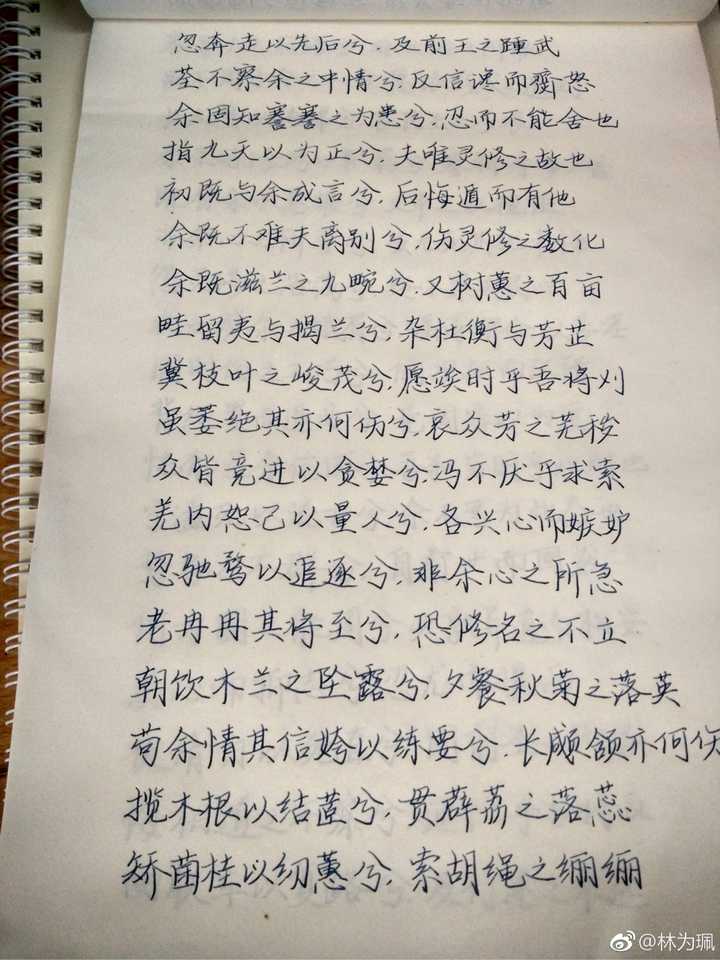 忽奔走以先后兮，及前王之踵武
荃不察余之中情兮，反信谗而齌怒
余固知謇謇之为患兮，忍而不能舍也
指九天以为正兮，夫唯灵修之故也
初既与余成言兮，后悔遁而有他
余既不难夫离别兮，伤灵修之数化
余既滋兰之九畹兮，又树蕙之百亩
畦留夷与揭兰兮，杂杜衡与芳芷
冀枝叶之峻茂兮，愿竢时乎吾将刈
虽萎绝其亦何伤兮，哀众芳之芜秽
众皆竞进以贪婪兮，冯不厌乎求索
羌内恕己以量人兮，各兴心而嫉妒
忽驰骛以追逐兮，非余心之所急
老冉冉其将至兮，恐修名之不立
朝饮木兰之坠露兮，夕餐秋菊之落英
苟余情其信姱以练要兮，长顑颔亦何伤
揽木根以结茝兮，贯薜荔之落蕊
矫菌桂以纫蕙兮，索胡绳之纚纚
@林为珮